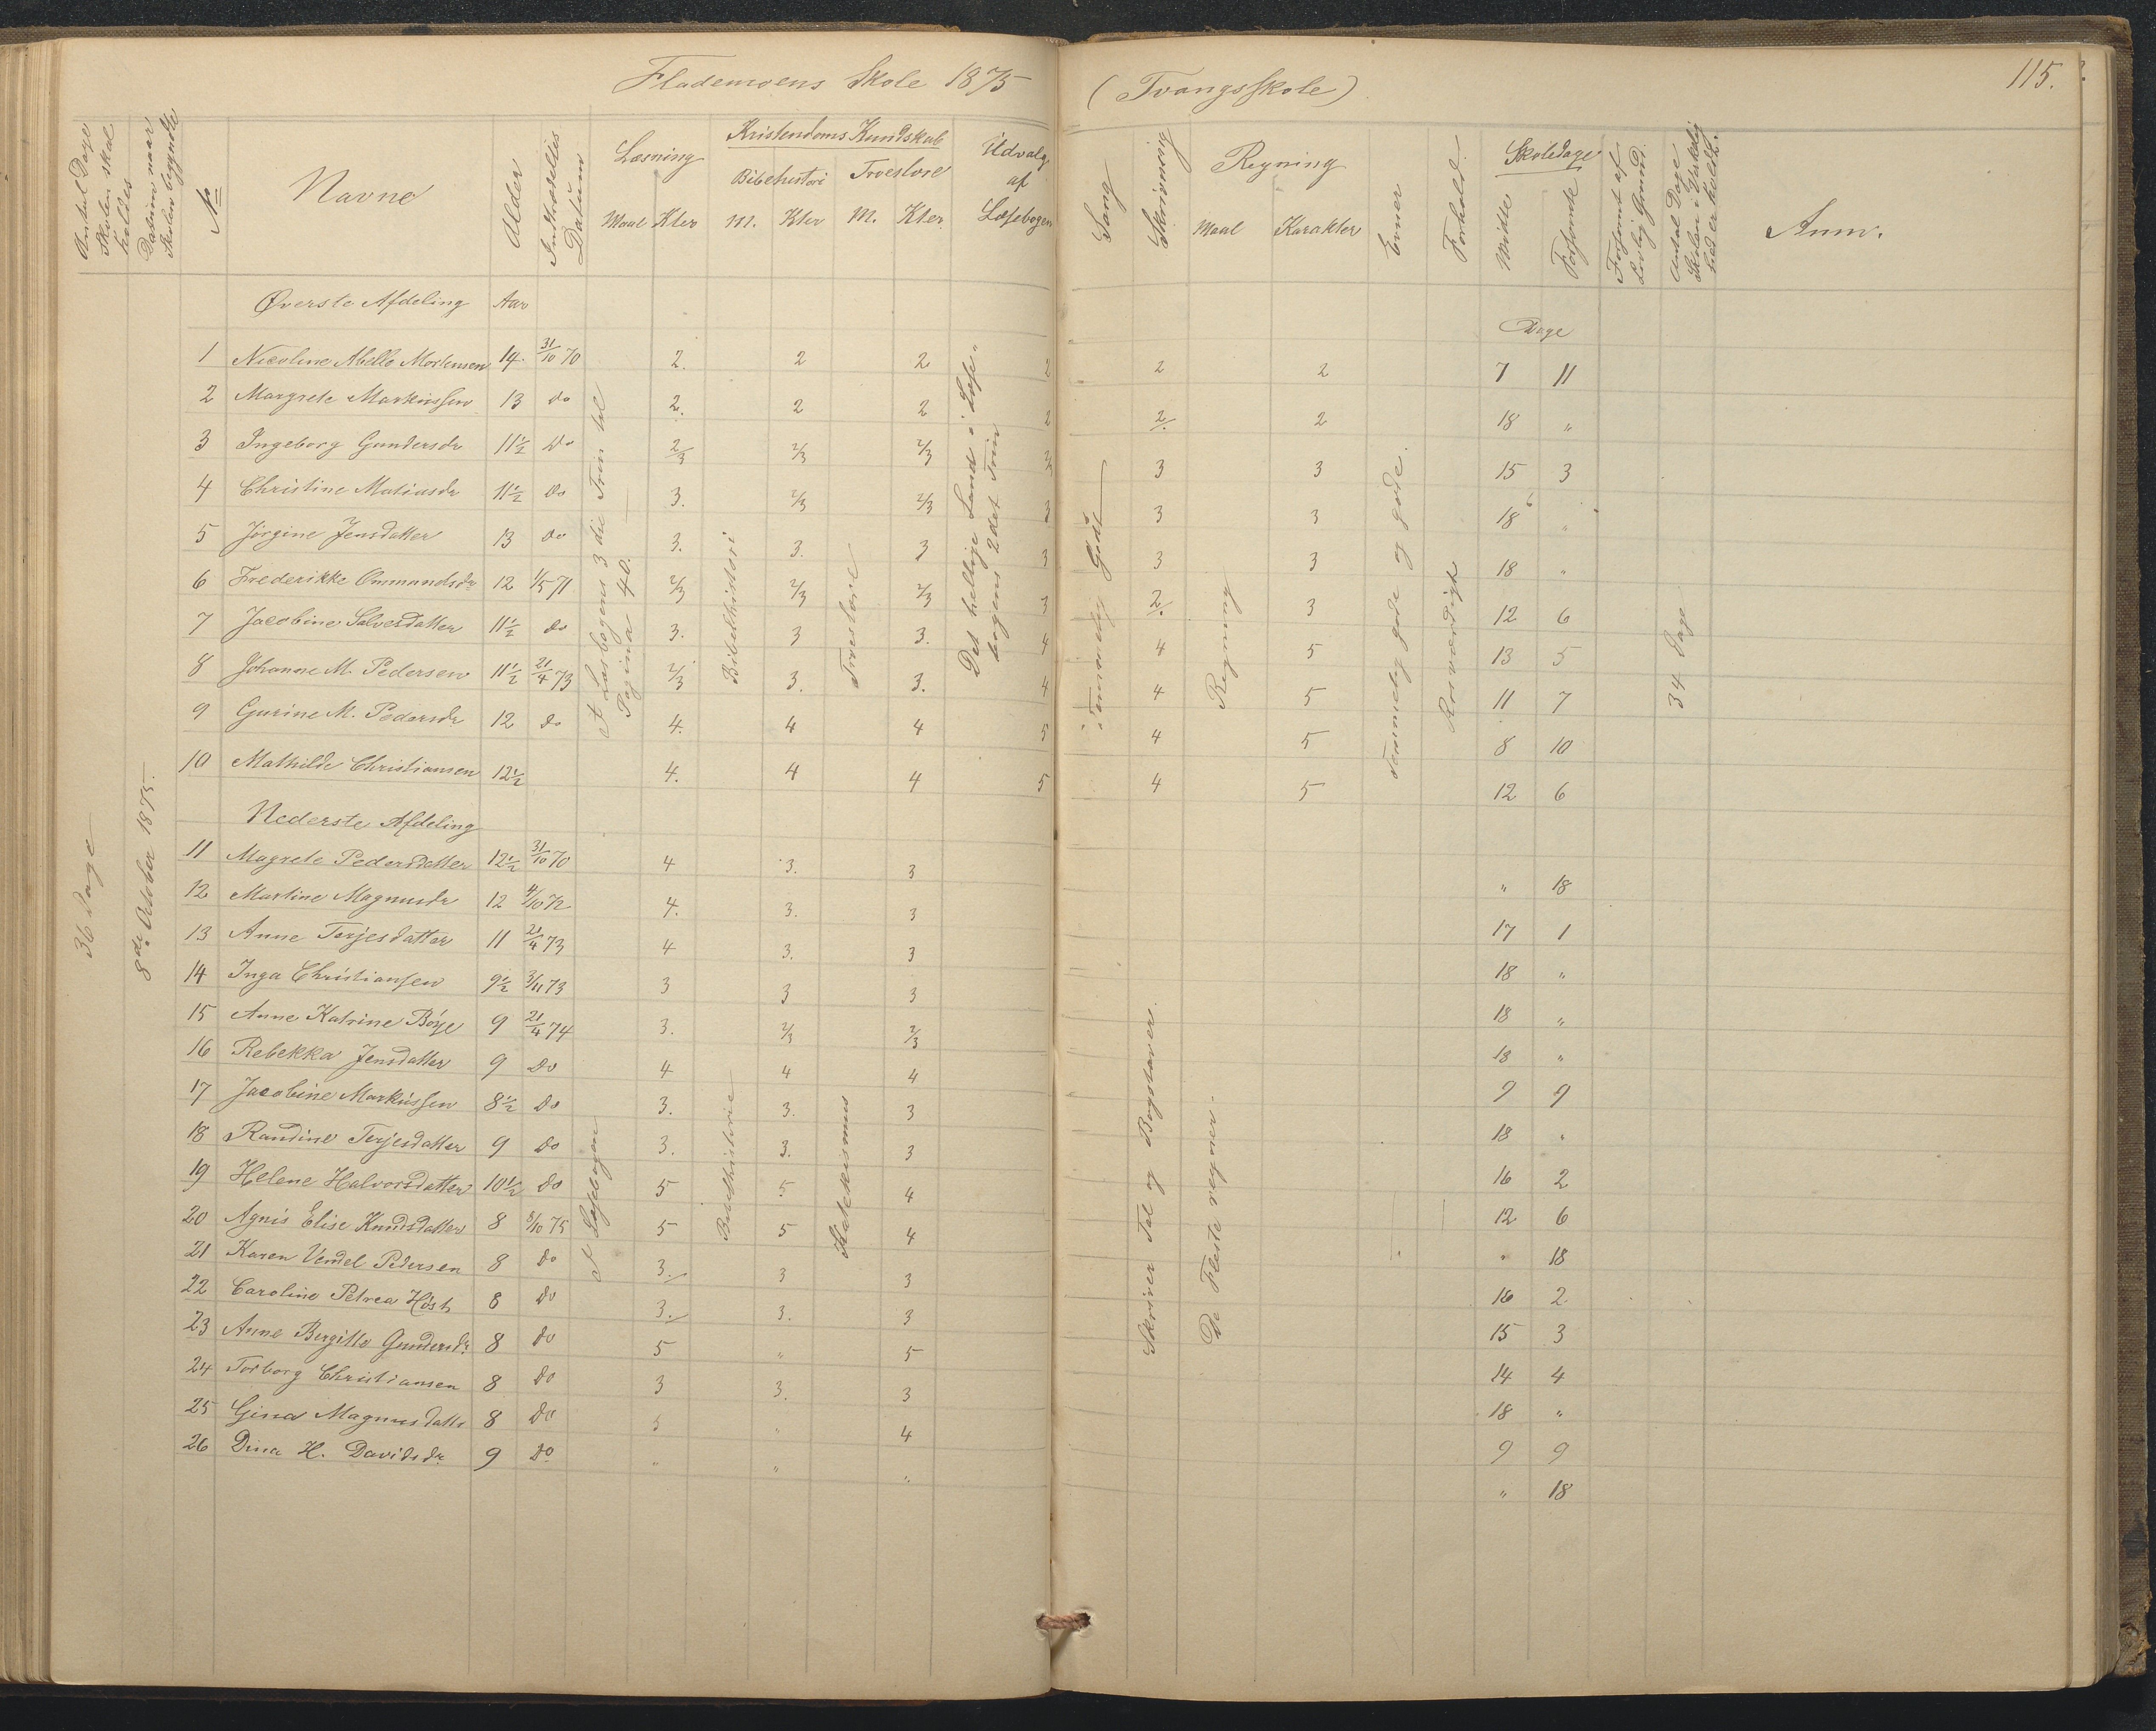 Flademoens Skole 1875 (Tvangsskole) 115.
Antal Dage Skolen skal holdes
Datum naar Skolen begyndte
No
Navne
Alder
Indtrædelses Datum
Læsning
Maal Kter
Kristendoms Kundskab
Bibelhistori Troeslære
M. Kter M. Kter.
Udvalg af Læsebogen
Sang
Skrivning
Regning
Maal Karakter
Evner
Forhold.
Skoledage
Mødte Forsømte
Forsømt af Lovlig Grund.
Antal Dage Skolen i Virkelighed er holdt.
Anm.
36 Dage
8de Oktober 1875.
Øverste Afdeling Aar Dage
1 Nicoline Abello Mortensen 14. 31/10 70 2. 2 2 2 2 2 7 11
2 Margrete Markussen 13 do 2. 2 2 2 2/. 2 18 "
3 Ingeborg Gundersdr 11½ do 2/3 2/3 2/3 3 3 15 3
4 Christine Matiasdr 11½ do 3. 2/3 2/3 3 3 3 18 "
5 Jørgine Jensdatter 13 do 3. 3. 3 3 3 3 18 "
6 Frederikke Ommundsdr 12 1/5 71 2/3 2/3 2/3 3 2/. 3 12 6
7 Jacobine Salvesdatter 11½ do 3. 3 3. 4 4 5 13 5
8 Johanne M. Pedersen 11½ 21/4 73 2/3 3. 3. 4 4 5 11 7
9 Gurine M. Pedersdr 12 do 4. 4 4 5 4 5 8 10
10 Mathilde Christiansen 12½ 4. 4 4 5 4 5 12 6
A Læsbogens 3die Trin til Pagina 40.
Bibelhistori
Troeslære
Det hellige Land i Læsebogens 2det Trin
Temmelig Godt
Regning
Temmelig gode og gode.
Rosværdigt
34 Dage
Nederste Afdeling
11 Magrete Pedersdatter 12½ 31/10 70 4 3. 3 " 18
12 Martine Magnusdr 12 4/10 72 4. 3. 3 17 1
13 Anne Terjesdatter 11 21/4 73 4 3. 3 18 "
14 Inga Christiansen 9½ 3/11 73 3 3 3 18 "
15 Anne Katrine Børje 9 21/4 74 3. 2/3 2/3 18 "
16 Rebekka Jensdatter 9 do 4 4 4 9 9
17 Jacobine Markussen 8½ do 3. 3. 3 18 "
18 Randine Terjesdatter 9 do 3. 3. 3 16 2
19 Helene Halvorsdatter 10½ do 5 5 4 12 6
20 Agnis Elise Knudsdatter 8 8/10 75 5 5 4 " 18
21 Karen Vendel Pedersen 8 do 3./ 3 3 16 2
22 Caroline Petrea Høst 8 do 3./ 3. 3 15 3
23 Anne Bergitte Gundersdr. 8 do 5 " 5 14 4
24 Torborg Christiansen 8 do 3 3. 3 18 "
25 Gina Magnusdatte 8 do 5 " 4 9 9
26 Dina H. Davidsdr. 9 do " " " " 18
A Læsebogen
Bibelhistorie
Katekismus
Skriver Tal og Bogstaver.
De Fleste regner.